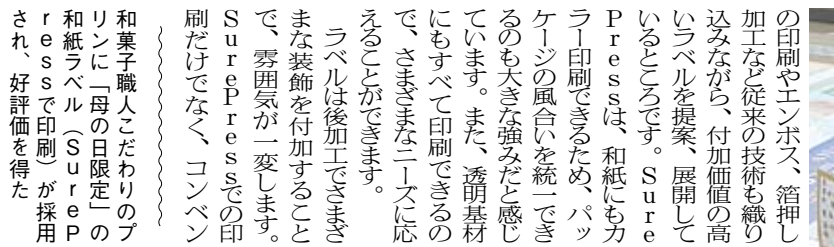 の印刷やエンボス、箔押し
加工など従来の技術も織り
込みながら、付加価値の高
いラベルを提案、展開して
いるところです。Sure
Pressは、和紙にもカ
ラー印刷できるため、パッ
ケージの風合いを統一でき
るのも大きな強みだと感じ
ています。また、透明基材
にもすべて印刷できるの
で、さまざまなニーズに応
えることができます。
ラベルは後加工でさまざ
まな装飾を付加すること
で、雰囲気が一変します。
SurePressでの印
刷だけでなく、コンベン
和菓子職人こだわりのプ
リンに「母の日限定」の
和紙ラベル（SureP
ressで印刷）が採用
され、好評価を得た